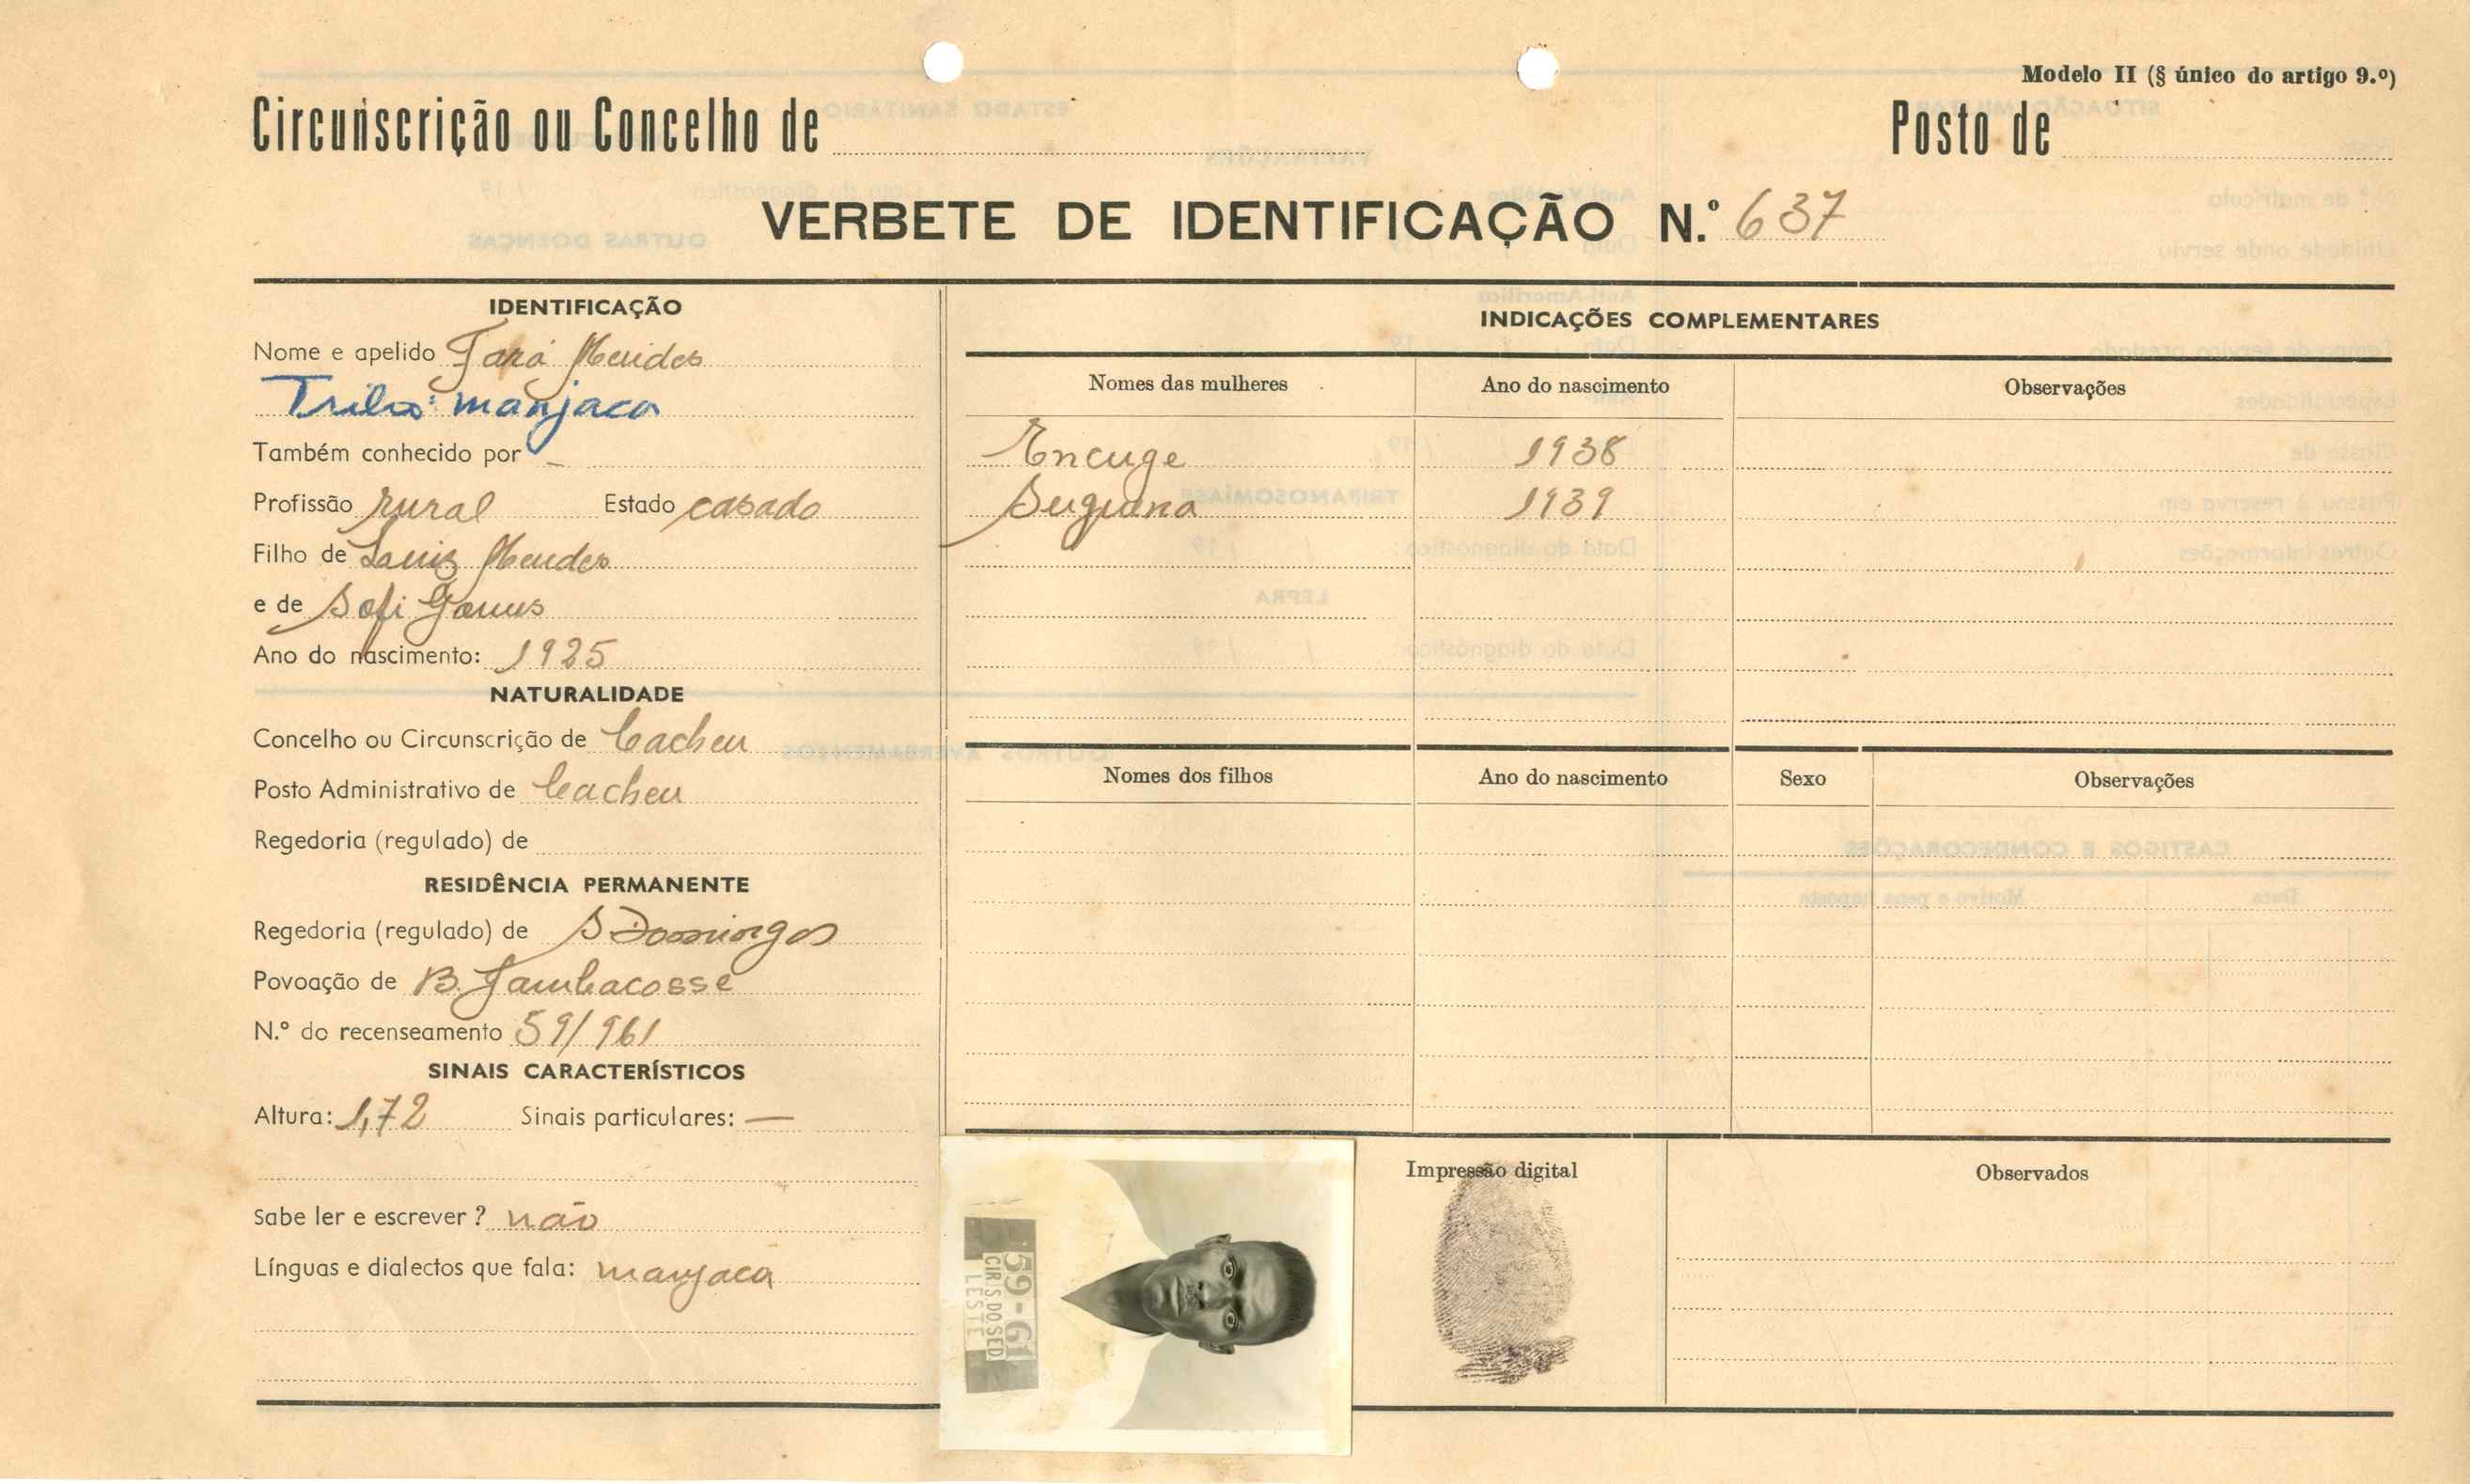 Modelo II (§ único do artigo 9.º)
Circunscrição ou Concelho de
Posto de
VERBETE DE IDENTIFICAÇÃO N.º 637
IDENTIFICAÇÃO
Nome e apelido Jará Mendes
Tribo: manjaca
Também conhecido por –
Profissão rural Estado casado
Filho de Luiz Mendes
e de Sofi Gomes
Ano do nascimento: 1925
NATURALIDADE
Concelho ou Circunscrição de Cacheu
Posto Administrativo de Cacheu
Regedoria (regulado) de
RESIDÊNCIA PERMANENTE
Regedoria (regulado) de S Domingos
Povoação de B. Jambacosse
N.º do recenseamento 59/961
SINAIS CARACTERÍSTICOS
Altura: 1,72 Sinais particulares: —
Sabe ler e escrever ? não
Línguas e dialectos que fala: manjaca
INDICAÇÕES COMPLEMENTARES
Nomes das mulheres Ano do nascimento Observações
Encuge 1938
1939
Nomes dos filhos Ano do nascimento Sexo Observações
59-61
CIR.S.DO.SED
LESTE
Impressão digital
Observados